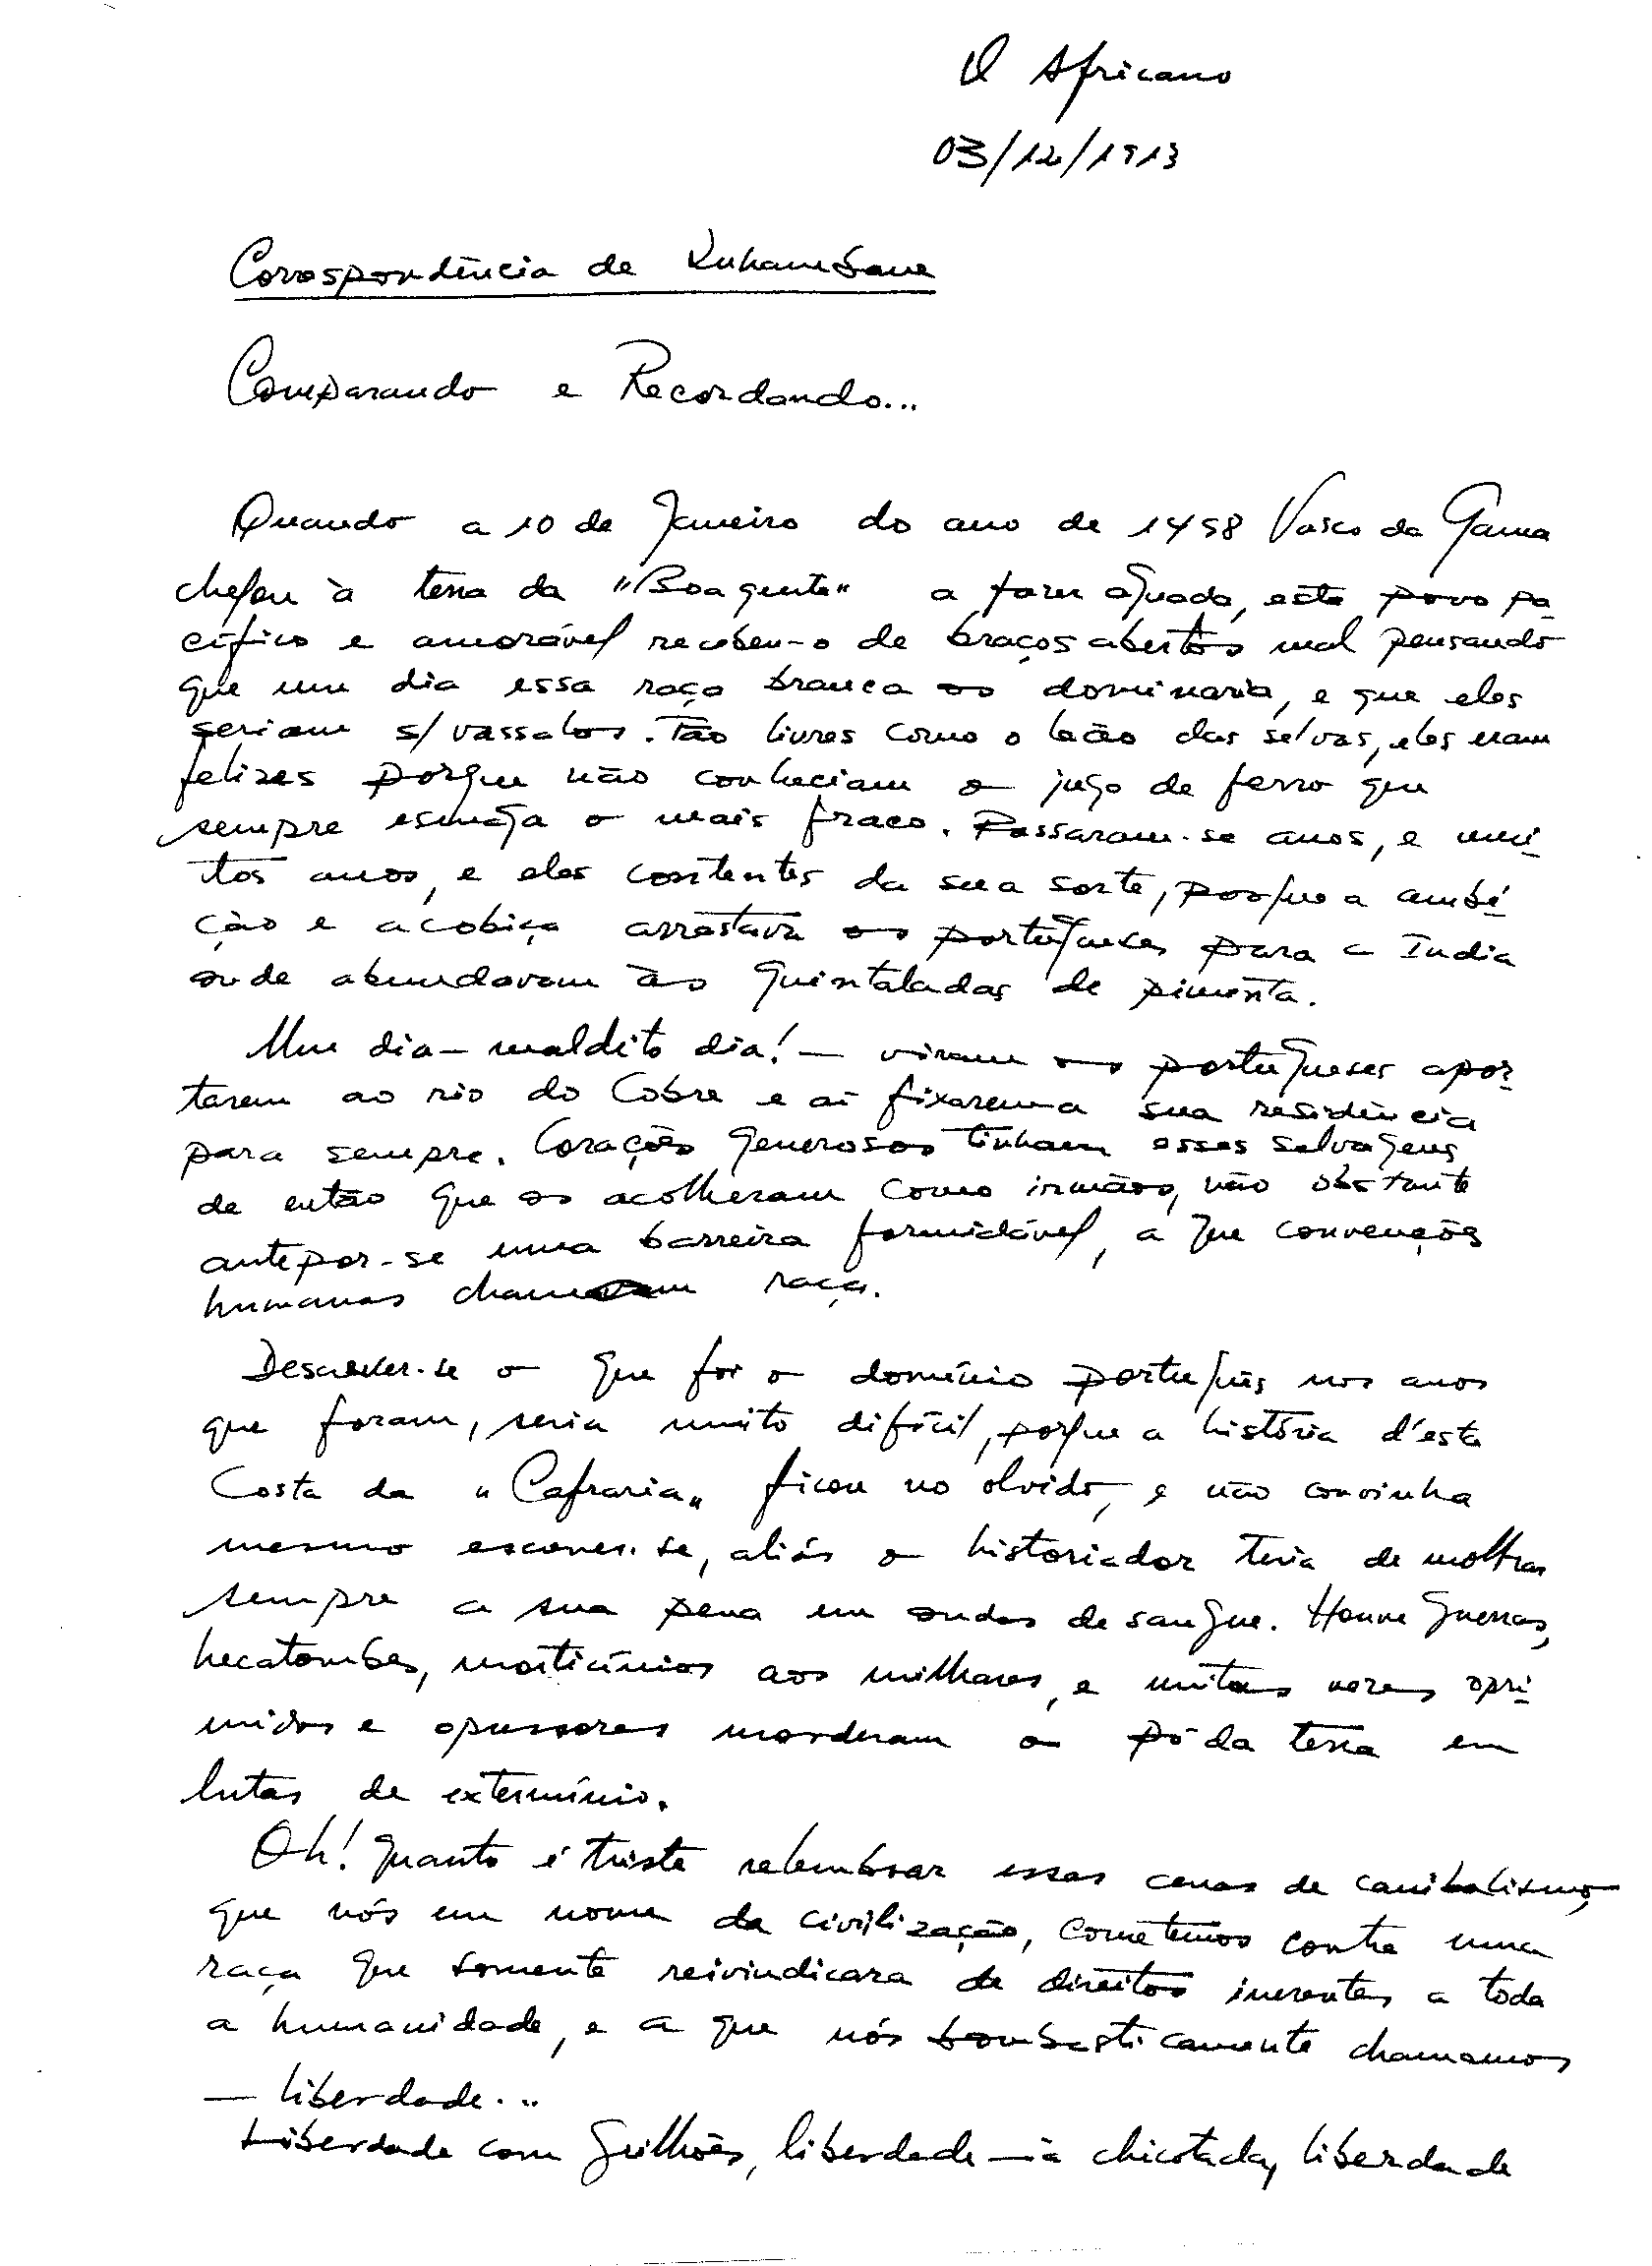 O Africano
03/12/1913
Correspondência de
Comparando e Recordando...
Quando a 10 de Janeiro do ano de 1498 Vasco da Gama
chegou à terra da "Boa gente" a fazer aguada, este povo pa
cífico e amorável recebeu-o de braços abertos mal pensando
que um dia essa raça branca os dominaria, e que eles
seriam s/ vassalos. Tão livres como o leão das selvas, eles eram
felizes porque não conheciam o jugo de ferro que
sempre esmaga o mais fraco. Passaram-se anos, e mui
tos anos, e eles contentes da sua sorte, porque a ambi
ção e a cobiça arrastava os portugueses para a India
onde abundavam as quintaladas de pimenta.
Um dia - maldito dia! - viram os portugueses apor
tarem ao rio do Cobre e aí fixarem a sua residência
para sempre. Corações generosos tinham esses selvagens
de então que os acolheram como irmãos, não obstante
antepor-se uma barreira formidável, a que convenções
humanas chamam raça.
Descrever-se o que foi o domínio português nos anos
que foram, seria muito difícil, porque a história d'esta
Costa da "Cafraria" ficou no olvido, e não convinha
mesmo escrever-se, aliás o historiador teria de molhar
sempre a sua pena em ondas de sangue. Houve guerras,
hecatombes, morticínios aos milhares, e muitas vezes opri
midos e opressores morderam o pó da terra em
lutas de extermínio.
Oh! quanto é triste relembrar essas cenas de canibalismo,
que nós em nome da civilização, cometemos contra uma
raça que somente reivindicara de direitos inerentes a toda
a humanidade, e a que nós bombasticamente chamamos
- liberdade...
Liberdade com grilhões, liberdade - à chicotada, liberdade